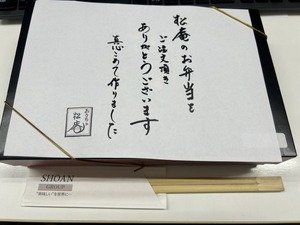 松庵のお弁当を
ご注文頂き
ありがとうございます
真心こめて作りました
おもちや
松庵
SHOAN
GROUP
"美味しい"を世界に…